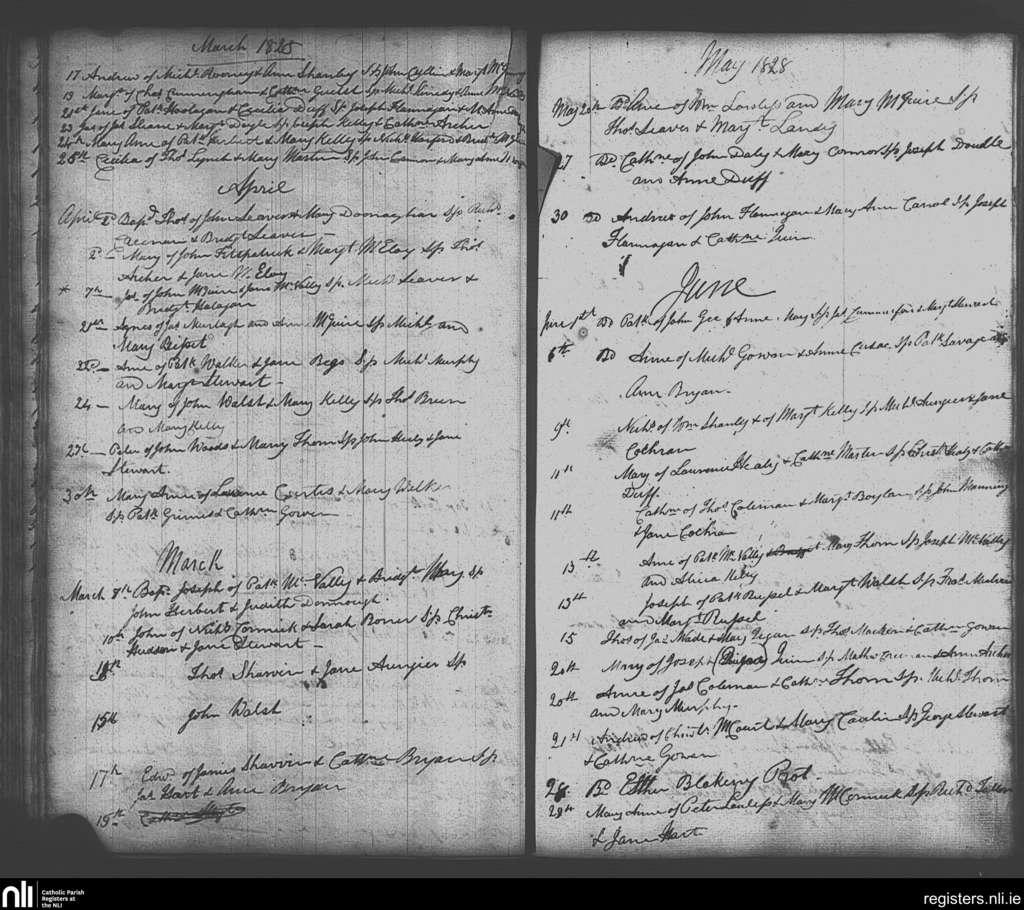 March 1828
17 Andrew of Mich. Rooney & Ann Shanley Sps John Cullin & Margt
19 Margt of Chas Cunningham & Cathn Sps Mich. Kennedy & Ann
20th Jane of Patk & Cecilia Duff Sps Joseph Flannagan &
23 Jas of Jas Shane & Margt Doyle Sps Joseph Kelly & Cathn Archer
24th Mary Anne of Patk & Mary Kelly Sps Mich.
28th Cecilia of Thos Lynch & Mary Martin Sps John & Mary Anne
April
April 2d Bapd Thos of John Leaver & Mary Sps Richd
& Bridgt Leaver —
2d — Mary of John Fitzpatrick & Margt McEloy Sps Thos
Archer & Jane McEloy
* 7th — Jas of John McGuire & Jane McNally Sps Mich Leaver &
Bridgt Halagan
21th Agnes of Jas Murtagh and Anne McGuire Sps Michl and
Mary
22d — Anne of Patk Walker & Jane Begs Sps Michl Murphy
and Margt Stewart —
24 — Mary of John Walsh & Mary Kelly Sps Thos Breen
and Mary Kelly
27th — Peter of John Woods & Mary Thom Sps John & Jane
Stewart.
30th Mary Anne of Laurence Curtis & Mary Walker
Sps Patk Grimes & Cathn Gowen
March
March 8th Bapd Joseph of Patk McNally & Bridgt Mary Sps
John Herbert & Judith Donnough.
10th John of Michl Cormick & Sarah Sps Christr
Hudson & Jane Stewart —
18th Thos Sharvin & Jane Aungier Sp
15th John Walsh
17th Edwd of James Sharvin & Cathne Bryan Sps
Jas Hart & Anne Bryan
19th
May 1828
May 20th Bd Anne of Wm Lawless and Mary McGuire Sps
Thos Leaver & Margt Landy
27 Bd Cathne of John Daly & Mary Connor Sps Joseph Doudle
and Anne Duff
30 Bd Andrew of John Flannagan & Mary Ann Carrol Sps Joseph
Flannagan & Cathne Quin
June
June 1st Bd Patk of John Gee & Anne Mary Sps Jas & Margt Steward
6th Bd Anne of Michl Gowan & Anne Cusac Sps Patk Savage and
Ann Bryan.
9th Michl of Wm Shanley & of Margt Kelly Sps Michl Aungier & Jane
Cothran
11th Mary of Laurence Healy & Cathne Master Sps Christr Healy & Cathn
Duff.
11th Cathne of Thos Coleman & Margt Boylan Sps John Manning
& Jane Cothran
13th Anne of Patk McNally & Mary Thom Sps Joseph McNally
and Alicia Kelly
13th Joseph of Patk Russel & Margt Walsh Sps Thos
and Margt Russel
15 Thos of Jas Wade & Mary Regan Sps Thos Macken & Cathne Gowan
20th Mary of Joseph Quin Sps Mathw & Ann Archer
20th Anne of Jas Coleman & Cathn Thom Sps. Michl Thom
and Mary Murphy.
21st Andrew of Christr McCourt & Mary Sps George Stewart
& Cathne Gowan
26 Bd Esther Blakeny Prot.
29th Mary Anne of Peter Lawless & Mary McCormick Sps Richd
& Jane Hart
nli
Catholic Parish
Registers at
the NLI
registers.nli.ie